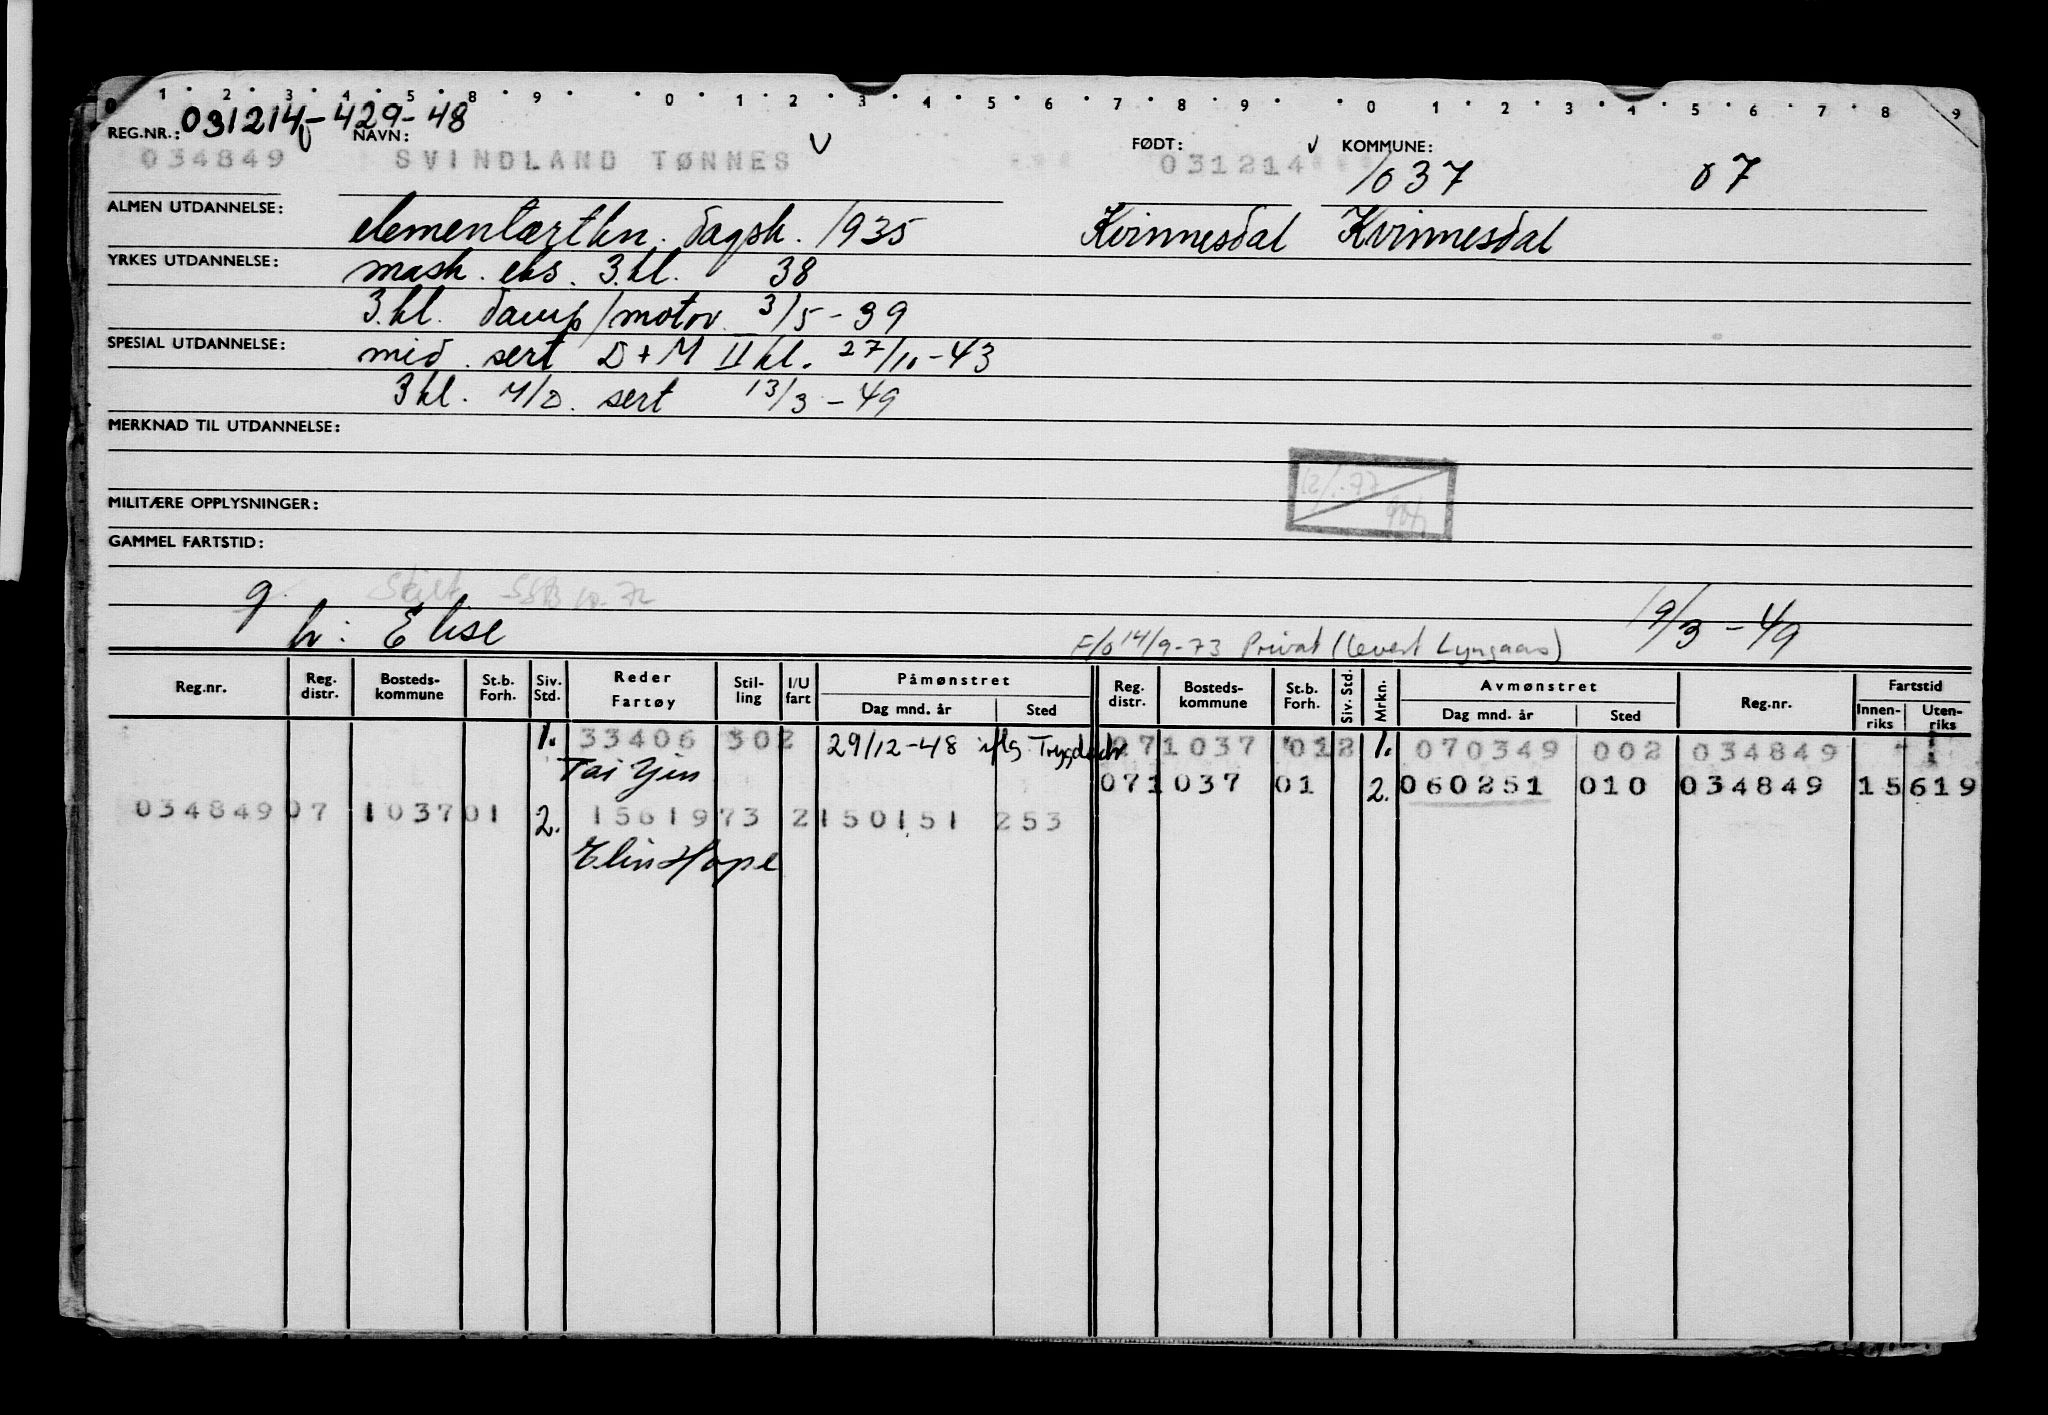 1 2 3 4 5 8 9 0 1 2 3 4 5 6 7 8 9 0 1 2 3 4 5 6 7 8 9
031214-429-48
REG.NR.: NAVN: FØDT: KOMMUNE:
034849 SVINDLAND TØNNES V 031214 1037 07
ALMEN UTDANNELSE: elementærtkn. dagsk. 1935 Kvinnesdal Kvinnesdal
YRKES UTDANNELSE: mask. eks. 3.kl. 38
3.kl. damp/motor 3/5-39
SPESIAL UTDANNELSE: mid. sert D+M II kl. 27/10-43
3kl. M/D. sert 13/3-49
MERKNAD TIL UTDANNELSE:
12/-77
MILITÆRE OPPLYSNINGER:
GAMMEL FARTSTID:
SSB 10.72
g h: Elise 19/3-49
F/O 14/9-73 Privat (levert Lyngaas)
Reg.nr. Reg. distr. Bosteds-kommune St.b. Forh. Siv. Std. Reder Fartøy Stil-ling I/U fart Påmønstret Dag mnd. år Sted Reg. distr. Bosteds-kommune St.b. Forh. Siv. Std. Mrkn. Avmønstret Dag mnd. år Sted Reg.nr. Fartstid Innen-riks Uten-riks
1. 33406 302 29/12-48 iflg Trygdadr 071037 012 1. 070349 002 034849
Tai Yin 071037 01 2. 060251 010 034849 15619
034849 07 1037 01 2. 1561973 2 150151 253
Elin Hope